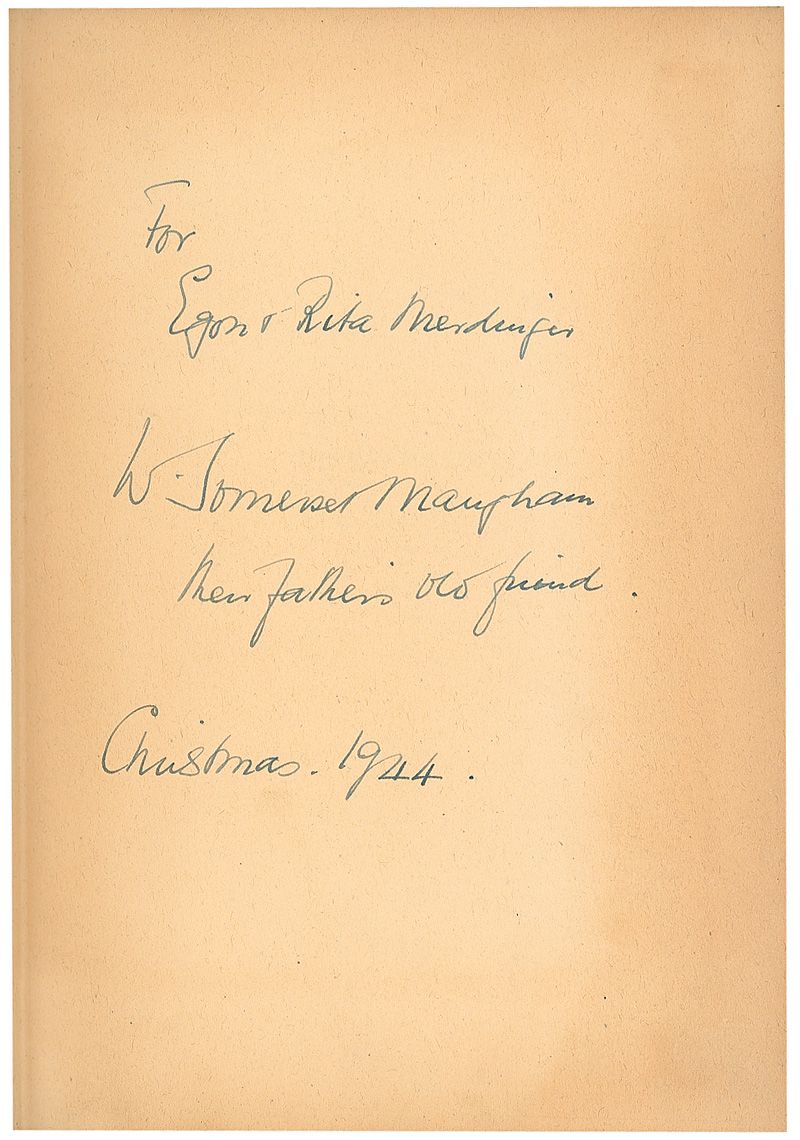 For
Egon & Rita Merdinger
W. Somerset Maugham
their father's old friend.
Christmas. 1944.